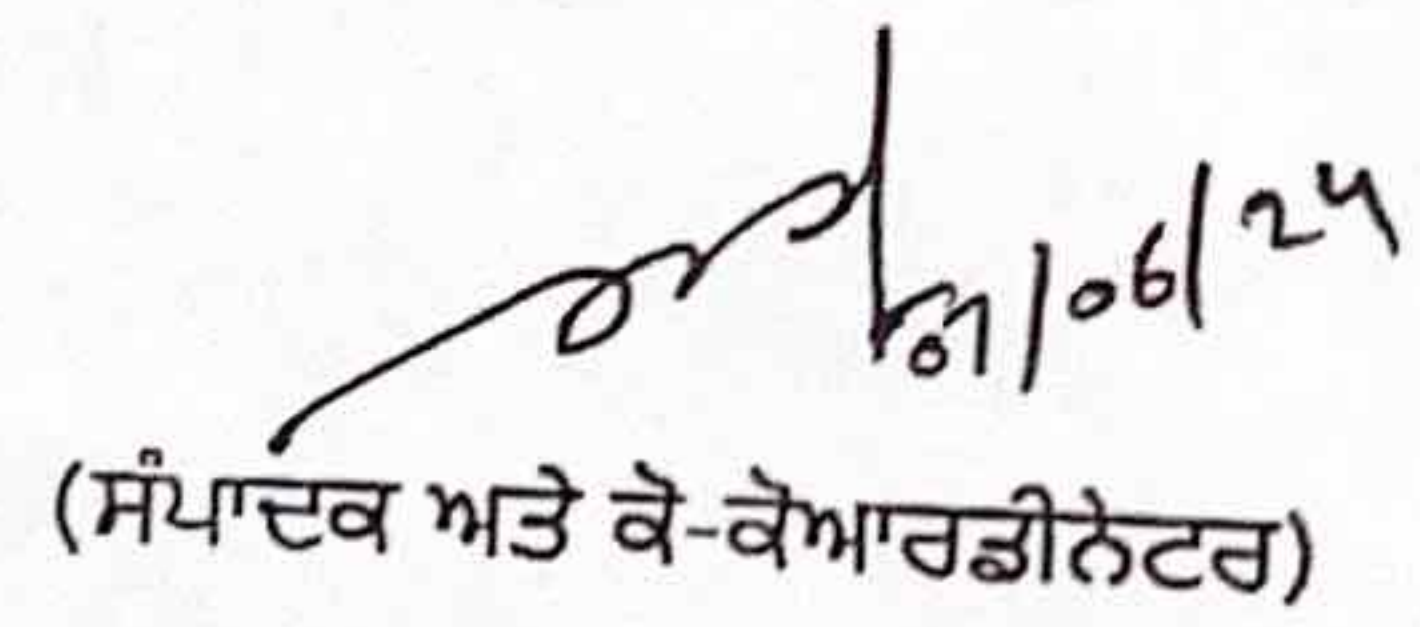 01/06/24
(ਸੰਪਾਦਕ ਅਤੇ ਕੋ-ਕੋਆਰਡੀਨੇਟਰ)